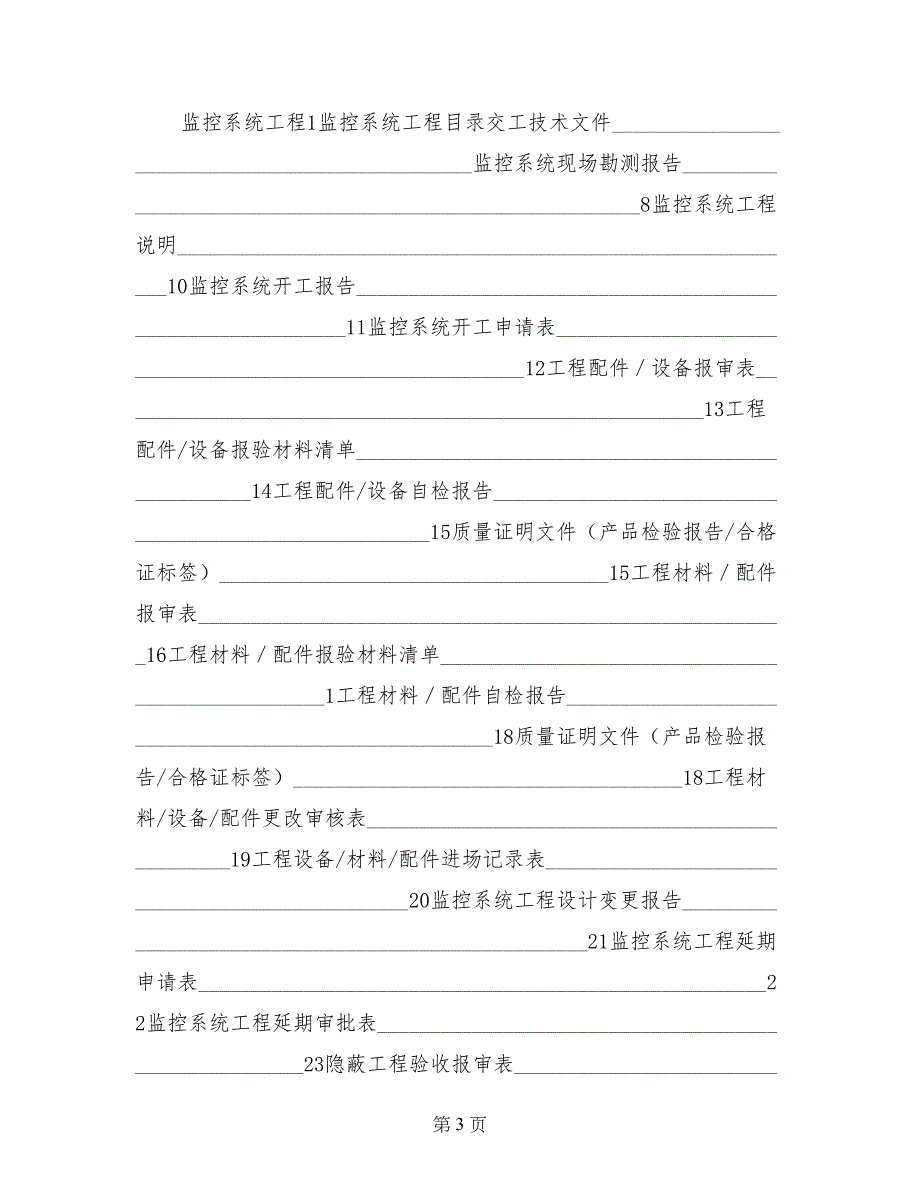 监控系统工程1监控系统工程目录交工技术文件________________
________________________________监控系统现场勘测报告_________
________________________________________________8监控系统工程
说明_________________________________________________________
___10监控系统开工报告________________________________________
____________________11监控系统开工申请表_____________________
_____________________________________12工程配件／设备报审表__
______________________________________________________13工程
配件/设备报验材料清单________________________________________
___________14工程配件/设备自检报告___________________________
____________________________15质量证明文件（产品检验报告/合格
证标签）_____________________________________15工程材料／配件
报审表_______________________________________________________
_16工程材料／配件报验材料清单________________________________
__________________1工程材料／配件自检报告____________________
__________________________________18质量证明文件（产品检验报
告/合格证标签）_____________________________________18工程材
料/设备/配件更改审核表_______________________________________
_________19工程设备/材料/配件进场记录表______________________
__________________________20监控系统工程设计变更报告_________
___________________________________________21监控系统工程延期
申请表______________________________________________________2
2监控系统工程延期审批表______________________________________
________________23隐蔽工程验收报审表_________________________
第 3 页